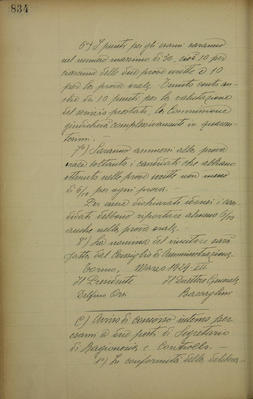 834
6°) I punti per gli esami saranno
nel numero massimo di 30, cioè 10 per
ciascuna delle due prove scritte e 10
per la prova orale. Tenuto conto an-
che di 10 punti per la valutazione
del servizio prestato, la Commissione
giudicherà complessivamente in quaran-
tesimi.
7°) Saranno ammessi alla prova
orale soltanto i candidati che abbiano
ottenuto nelle prove scritte non meno
di 6/10 per ogni prova.
Per essere dichiarati idonei i can-
didati debbono riportare almeno 6/10
anche nella prova orale.
8°) La nomina dei vincitori sarà
fatta dal Consiglio di Amministrazione.
Torino, Marzo 1934-XII
Il Presidente Il Direttore Generale
Delfino Orsi
C) Avviso di concorso interno per
esami a due posti di Segretario
di Ragioneria e Controllo.
1°) In conformità della delibera-